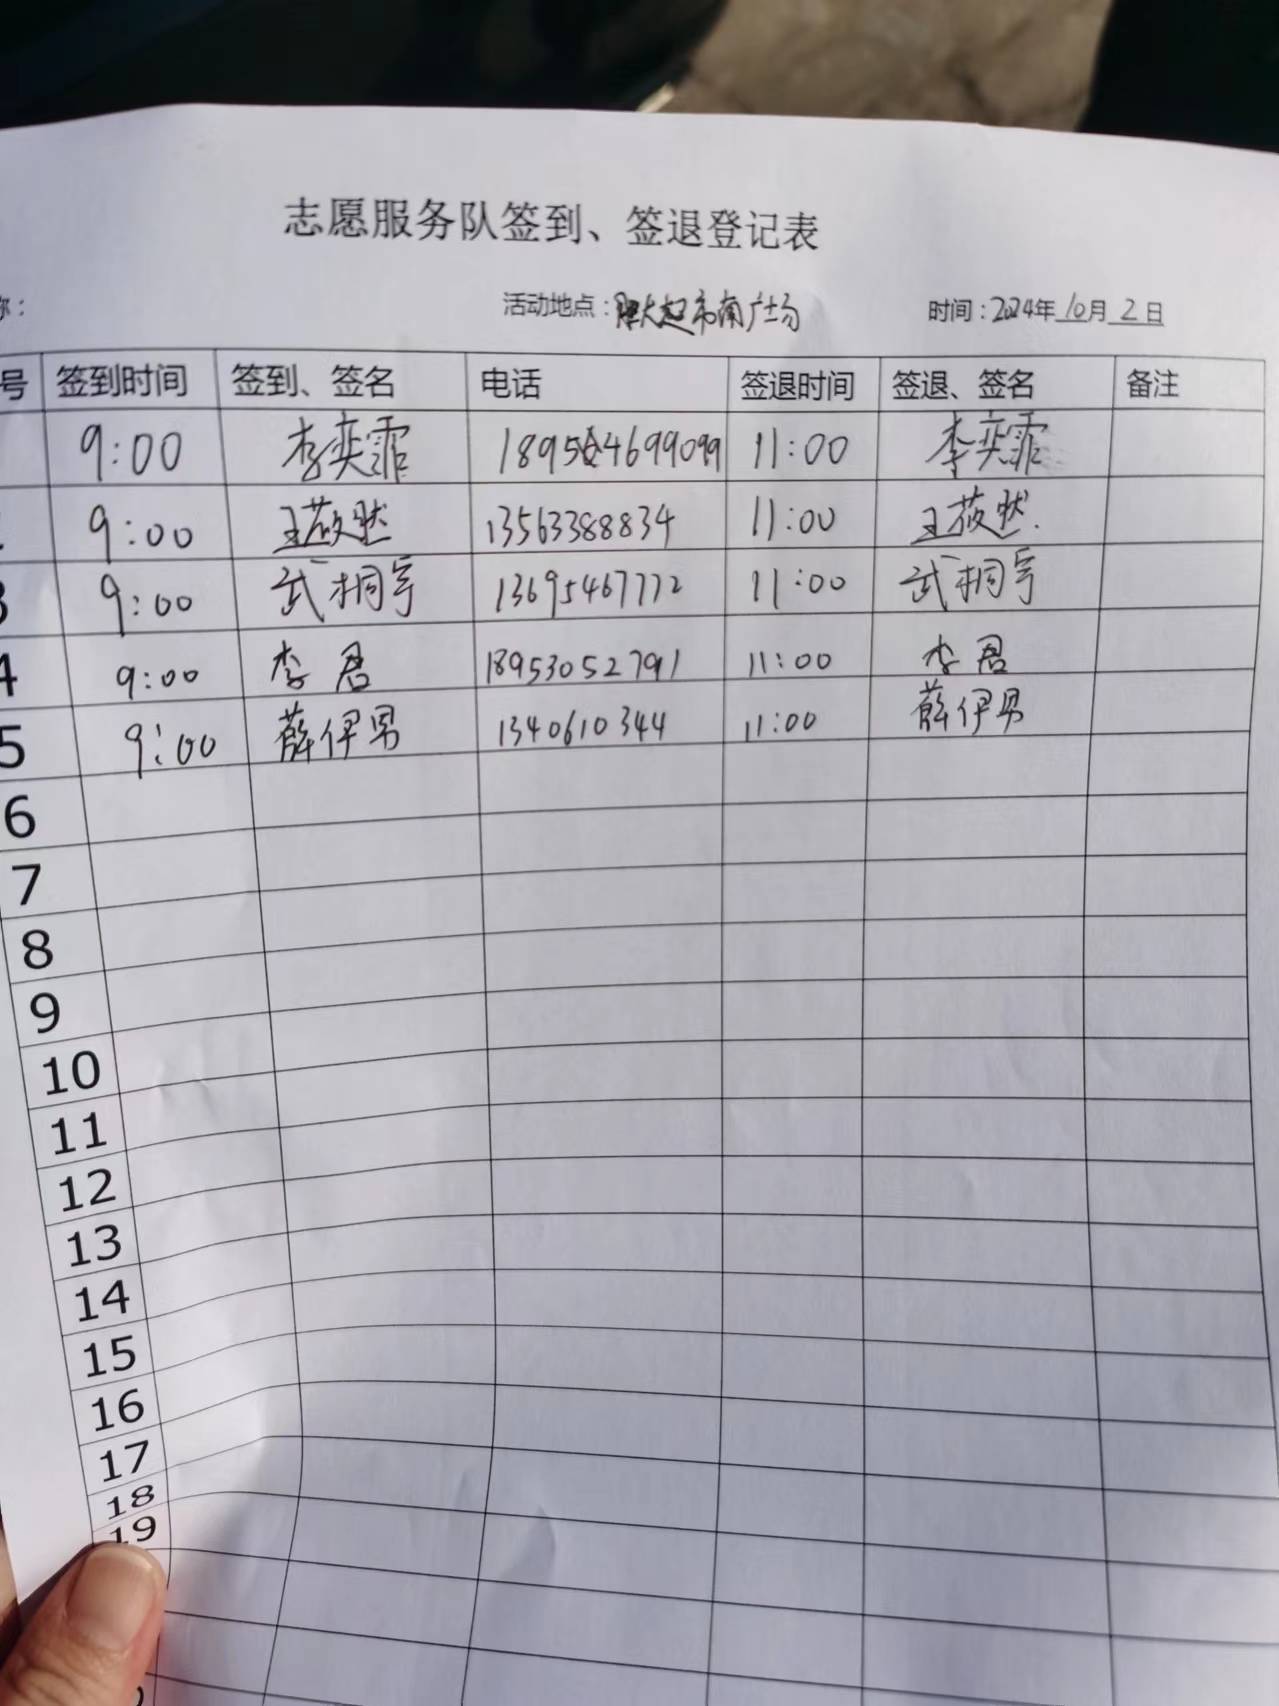 志愿服务队签到、签退登记表
称： 活动地点：大超市南广场 时间：2024年10月2日
号 签到时间 签到、签名 电话 签退时间 签退、签名 备注
9:00 李奕霏 11:00 李奕霏
9:00 王莜然 13563388834 11:00 王莜然.
3 9:00 武桐宇 13695467772 11:00 武桐宇
4 9:00 李君 18953052791 11:00 李君
5 9:00 薛伊男 1340610344 11:00 薛伊男
6
7
8
9
10
11
12
13
14
15
16
17
18
19